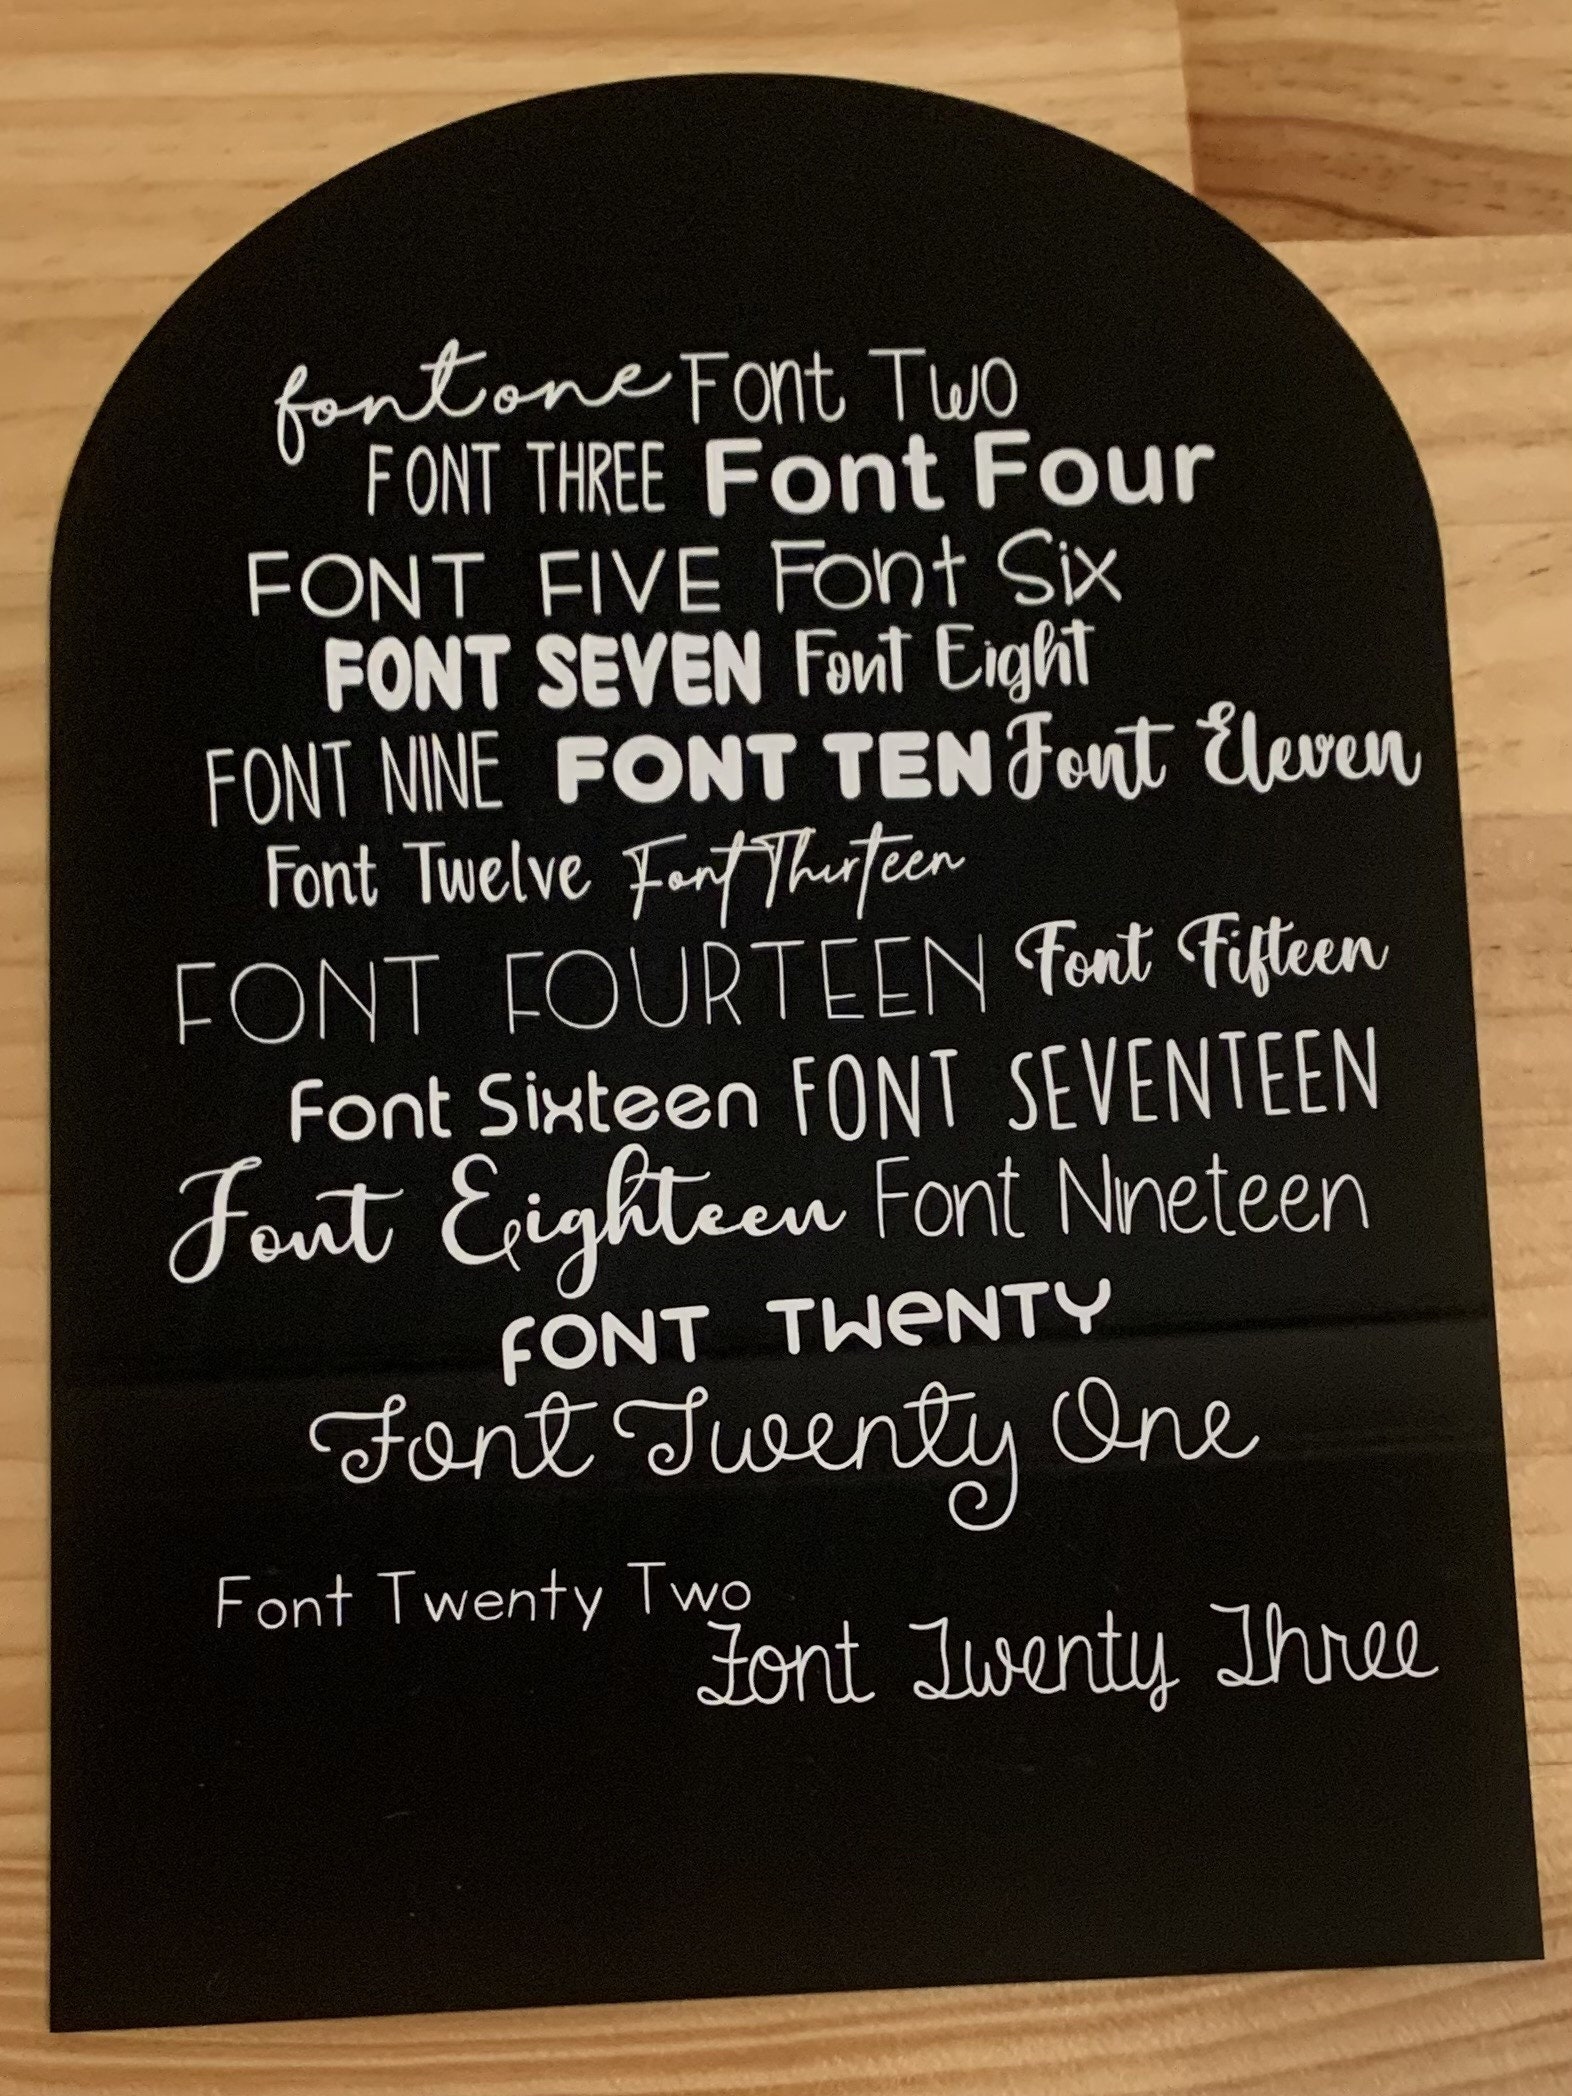 fontone Font Two
FONT THREE Font Four
FONT FIVE Font Six
FONT SEVEN Font Eight
FONT NINE FONT TEN Font Eleven
Font Twelve Font Thirteen
FONT FOURTEEN Font Fifteen
Font Sixteen FONT SEVENTEEN
Font Eighteen Font Nineteen
FONT TWeNTY
Font Twenty One
Font Twenty Two
Font Twenty Three